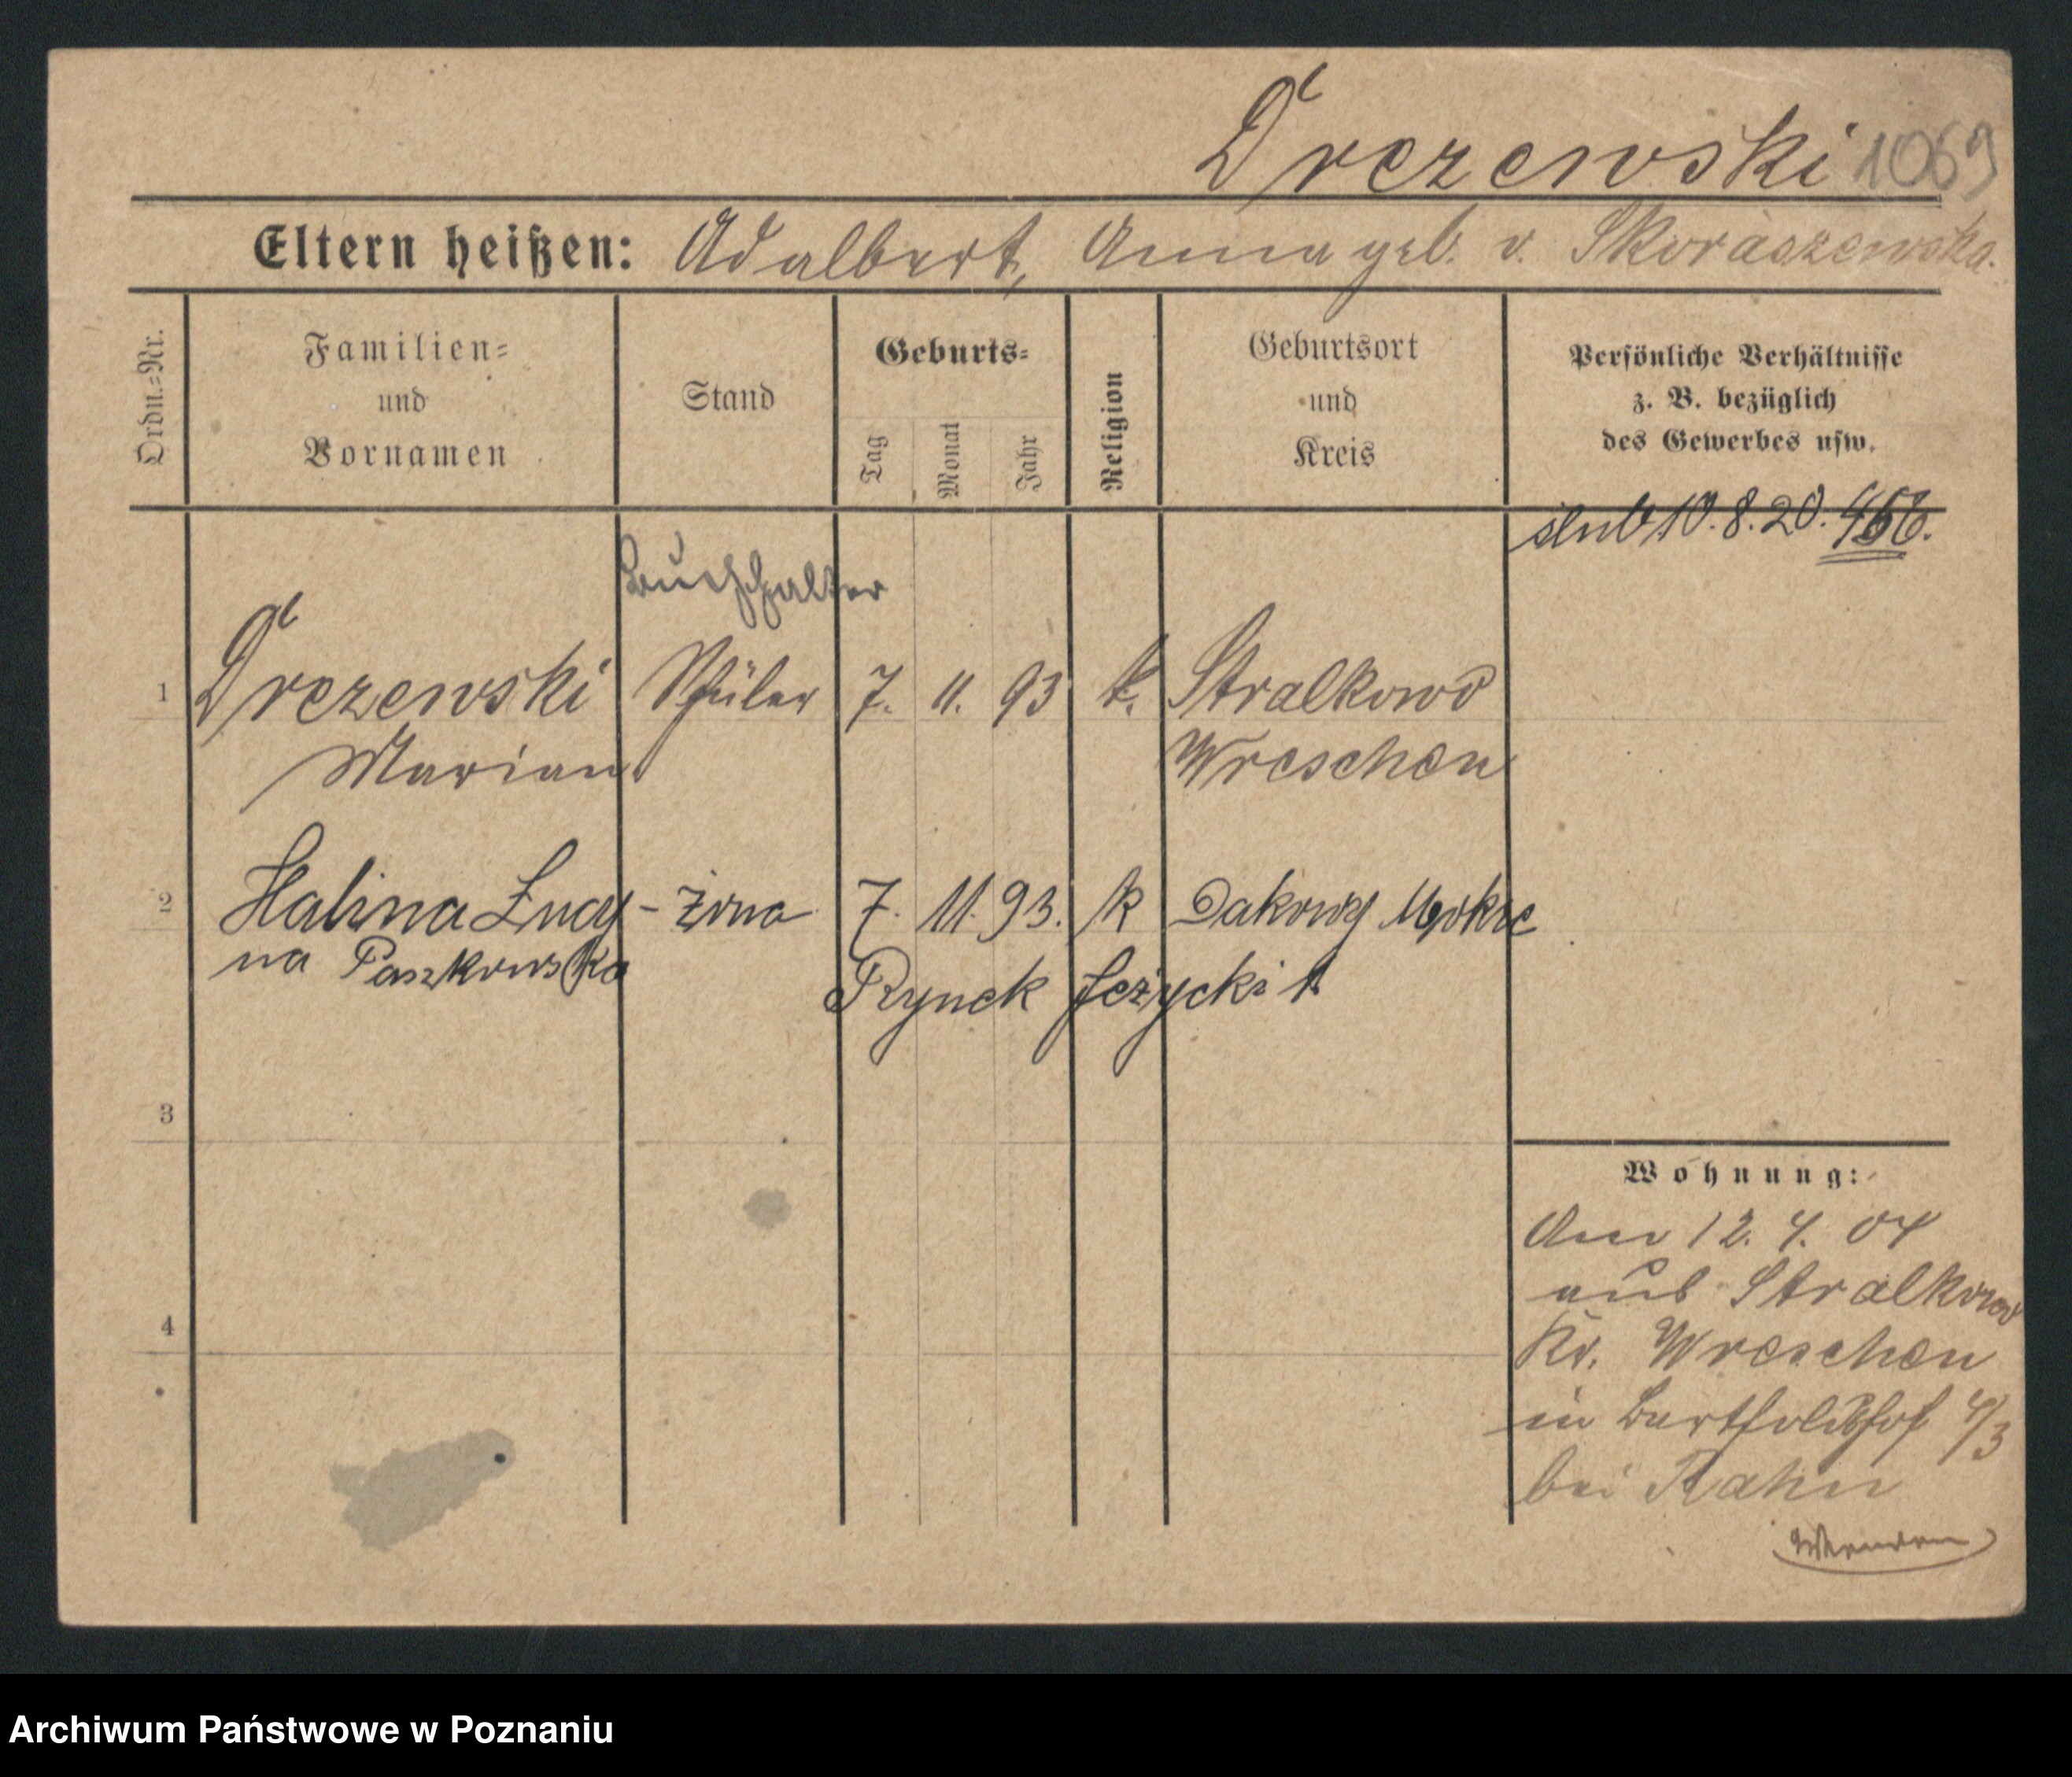 Drezewski 1069
Eltern heißen: Adalbert, Anna geb. v. Skoraszewska.
Ordn.=Nr.
Familien=
und
Vornamen
Stand
Geburts=
Tag
Monat
Jahr
Religion
Geburtsort
und
Kreis
Persönliche Verhältnisse
z. B. bezüglich
des Gewerbes usw.
ślub 10. 8. 20. 466.
Buchhalter
1 Drezewski Schüler 7. 11. 93 k. Stralkowo
Marian Wreschen
2 Halina Lucy- żona 7. 11. 93. k Dakowy Mokre
na Paszkowska
Rynek Jeżycki 1
3
4
Wohnung:
Am 12. 4. 04
aus Stralkowo
Kr. Wreschen
in Bartholdshof 4/3
bei Rahn
Archiwum Państwowe w Poznaniu